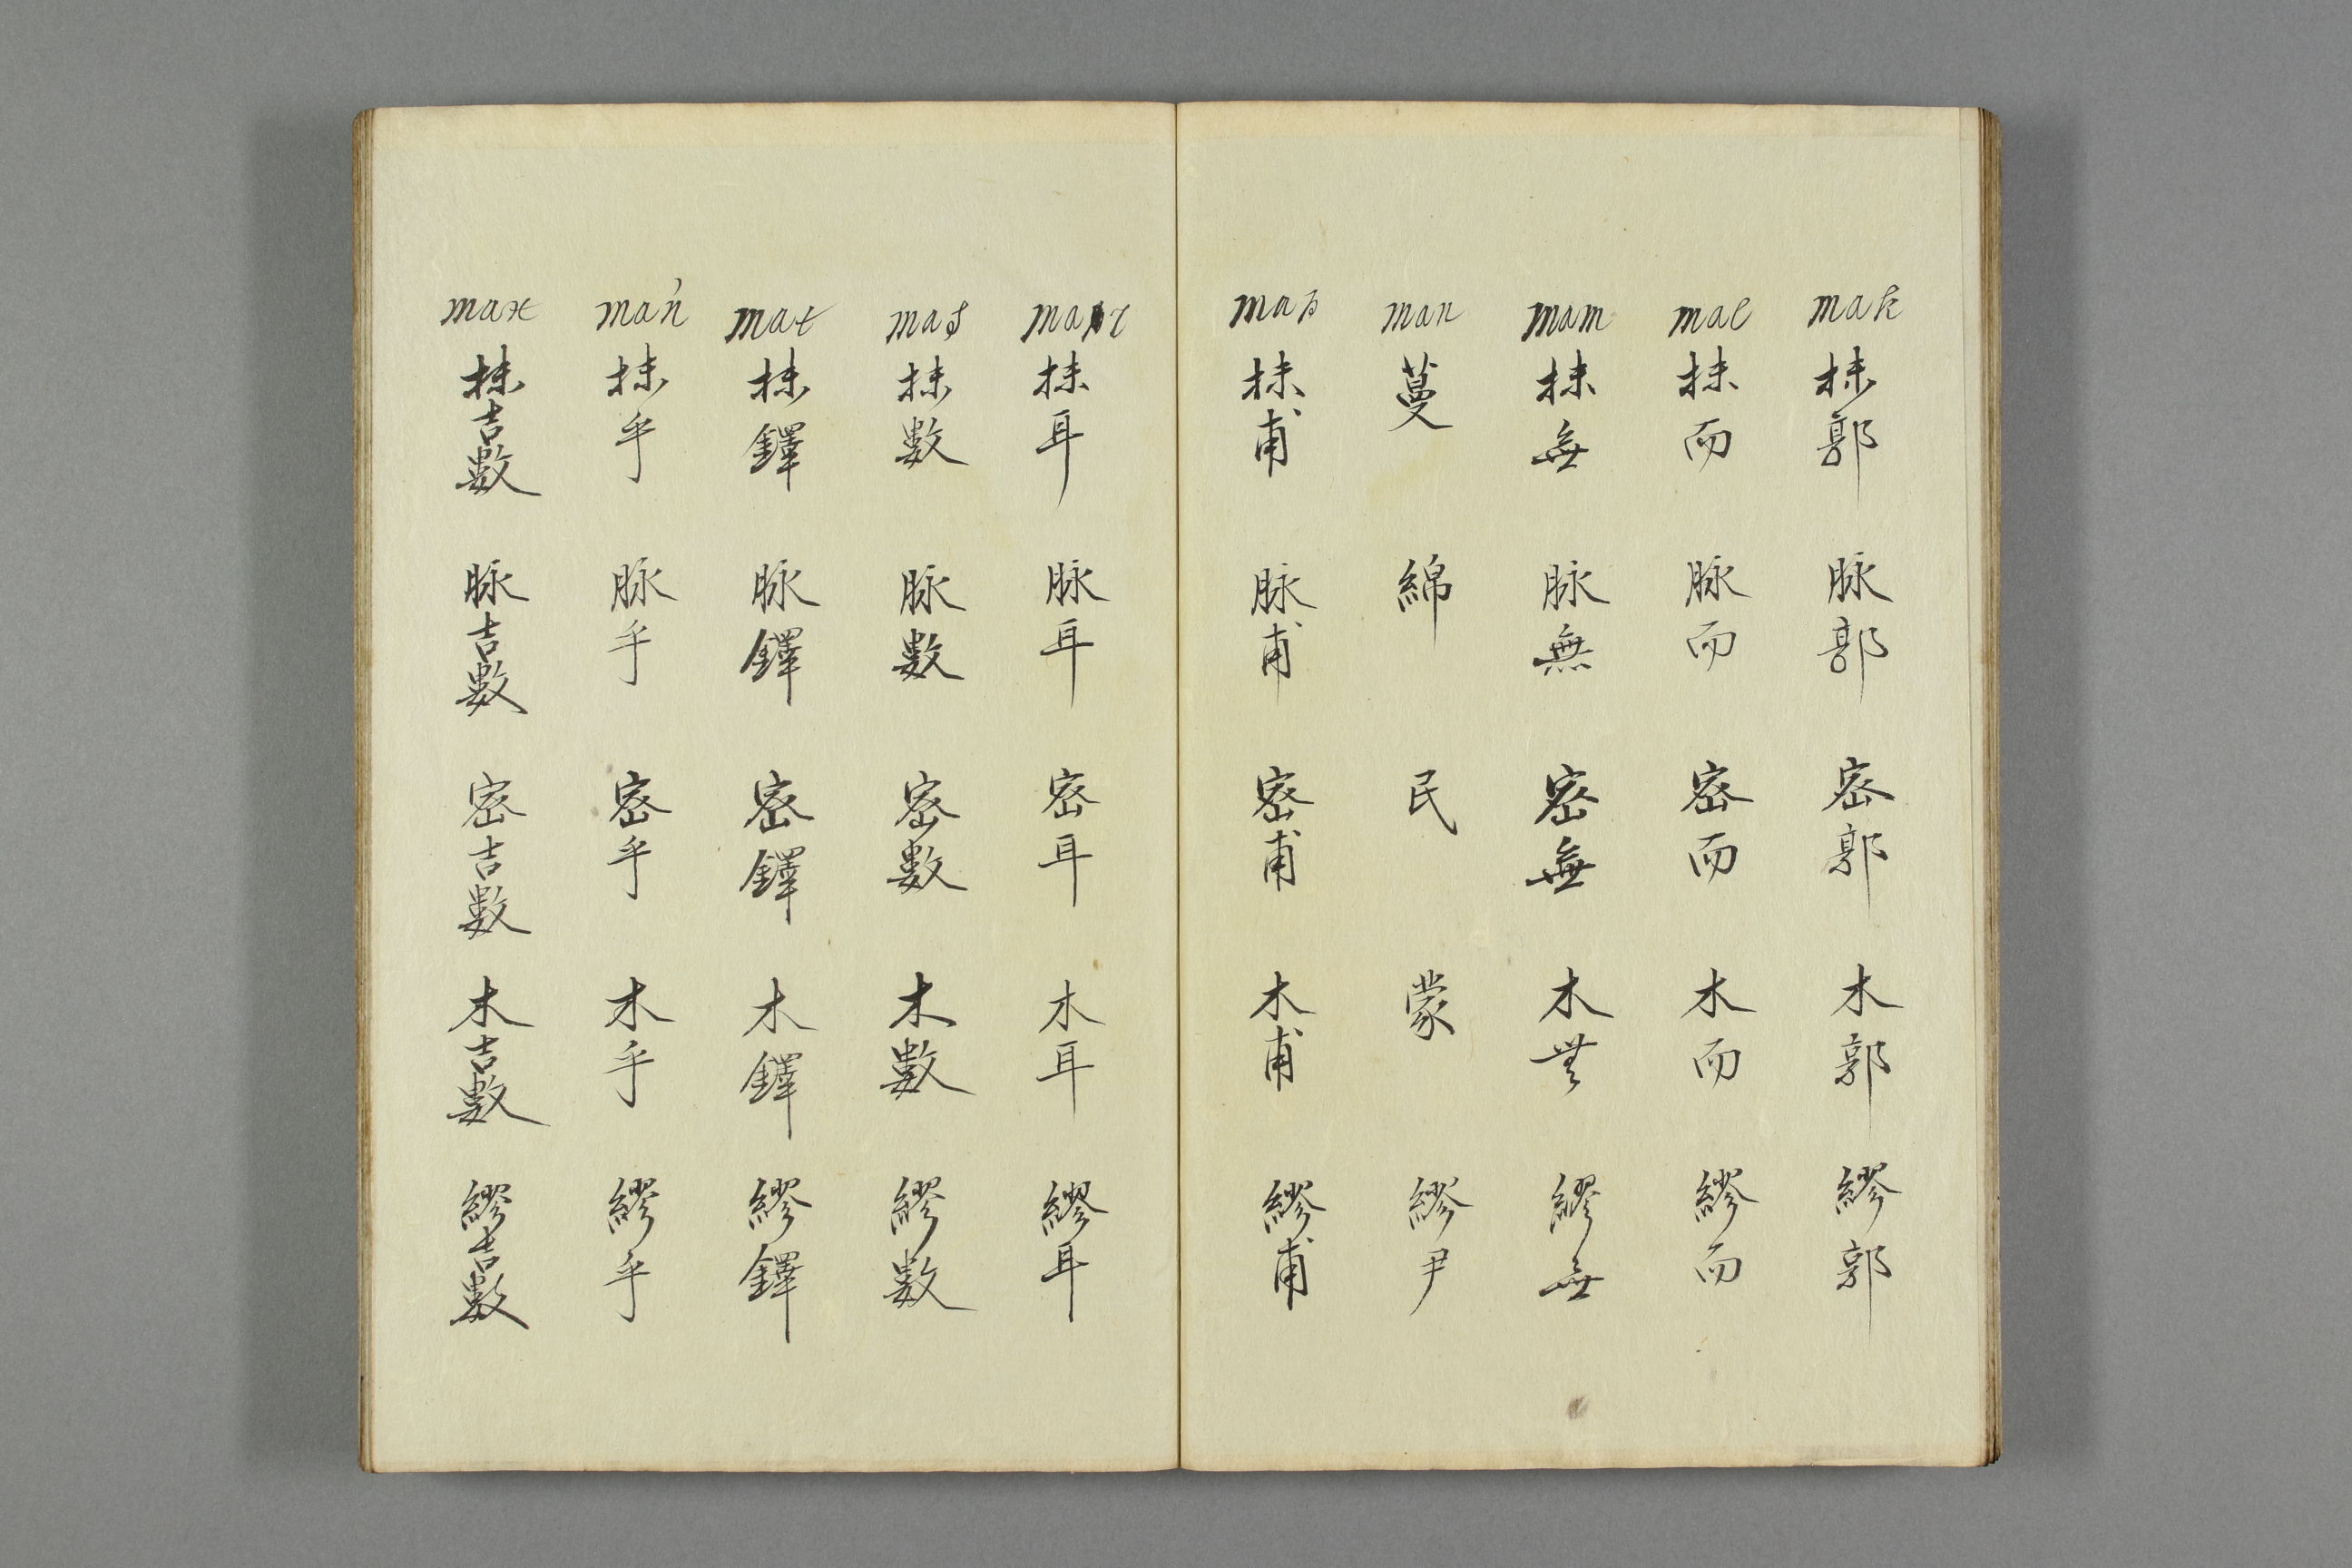 mak 抹郭 脉郭 密郭 木郭 繆郭
mal 抹而 脉而 密而 木而 繆而
mam 抹無 脉無 密無 木無 繆無
man 蔓 綿 民 蒙 繆尹
map 抹甫 脉甫 密甫 木甫 繆甫
mar 抹耳 脉耳 密耳 木耳 繆耳
mas 抹數 脉數 密數 木數 繆數
mat 抹鐸 脉鐸 密鐸 木鐸 繆鐸
mań 抹乎 脉乎 密乎 木乎 繆乎
max 抹吉數 脉吉數 密吉數 木吉數 繆吉數